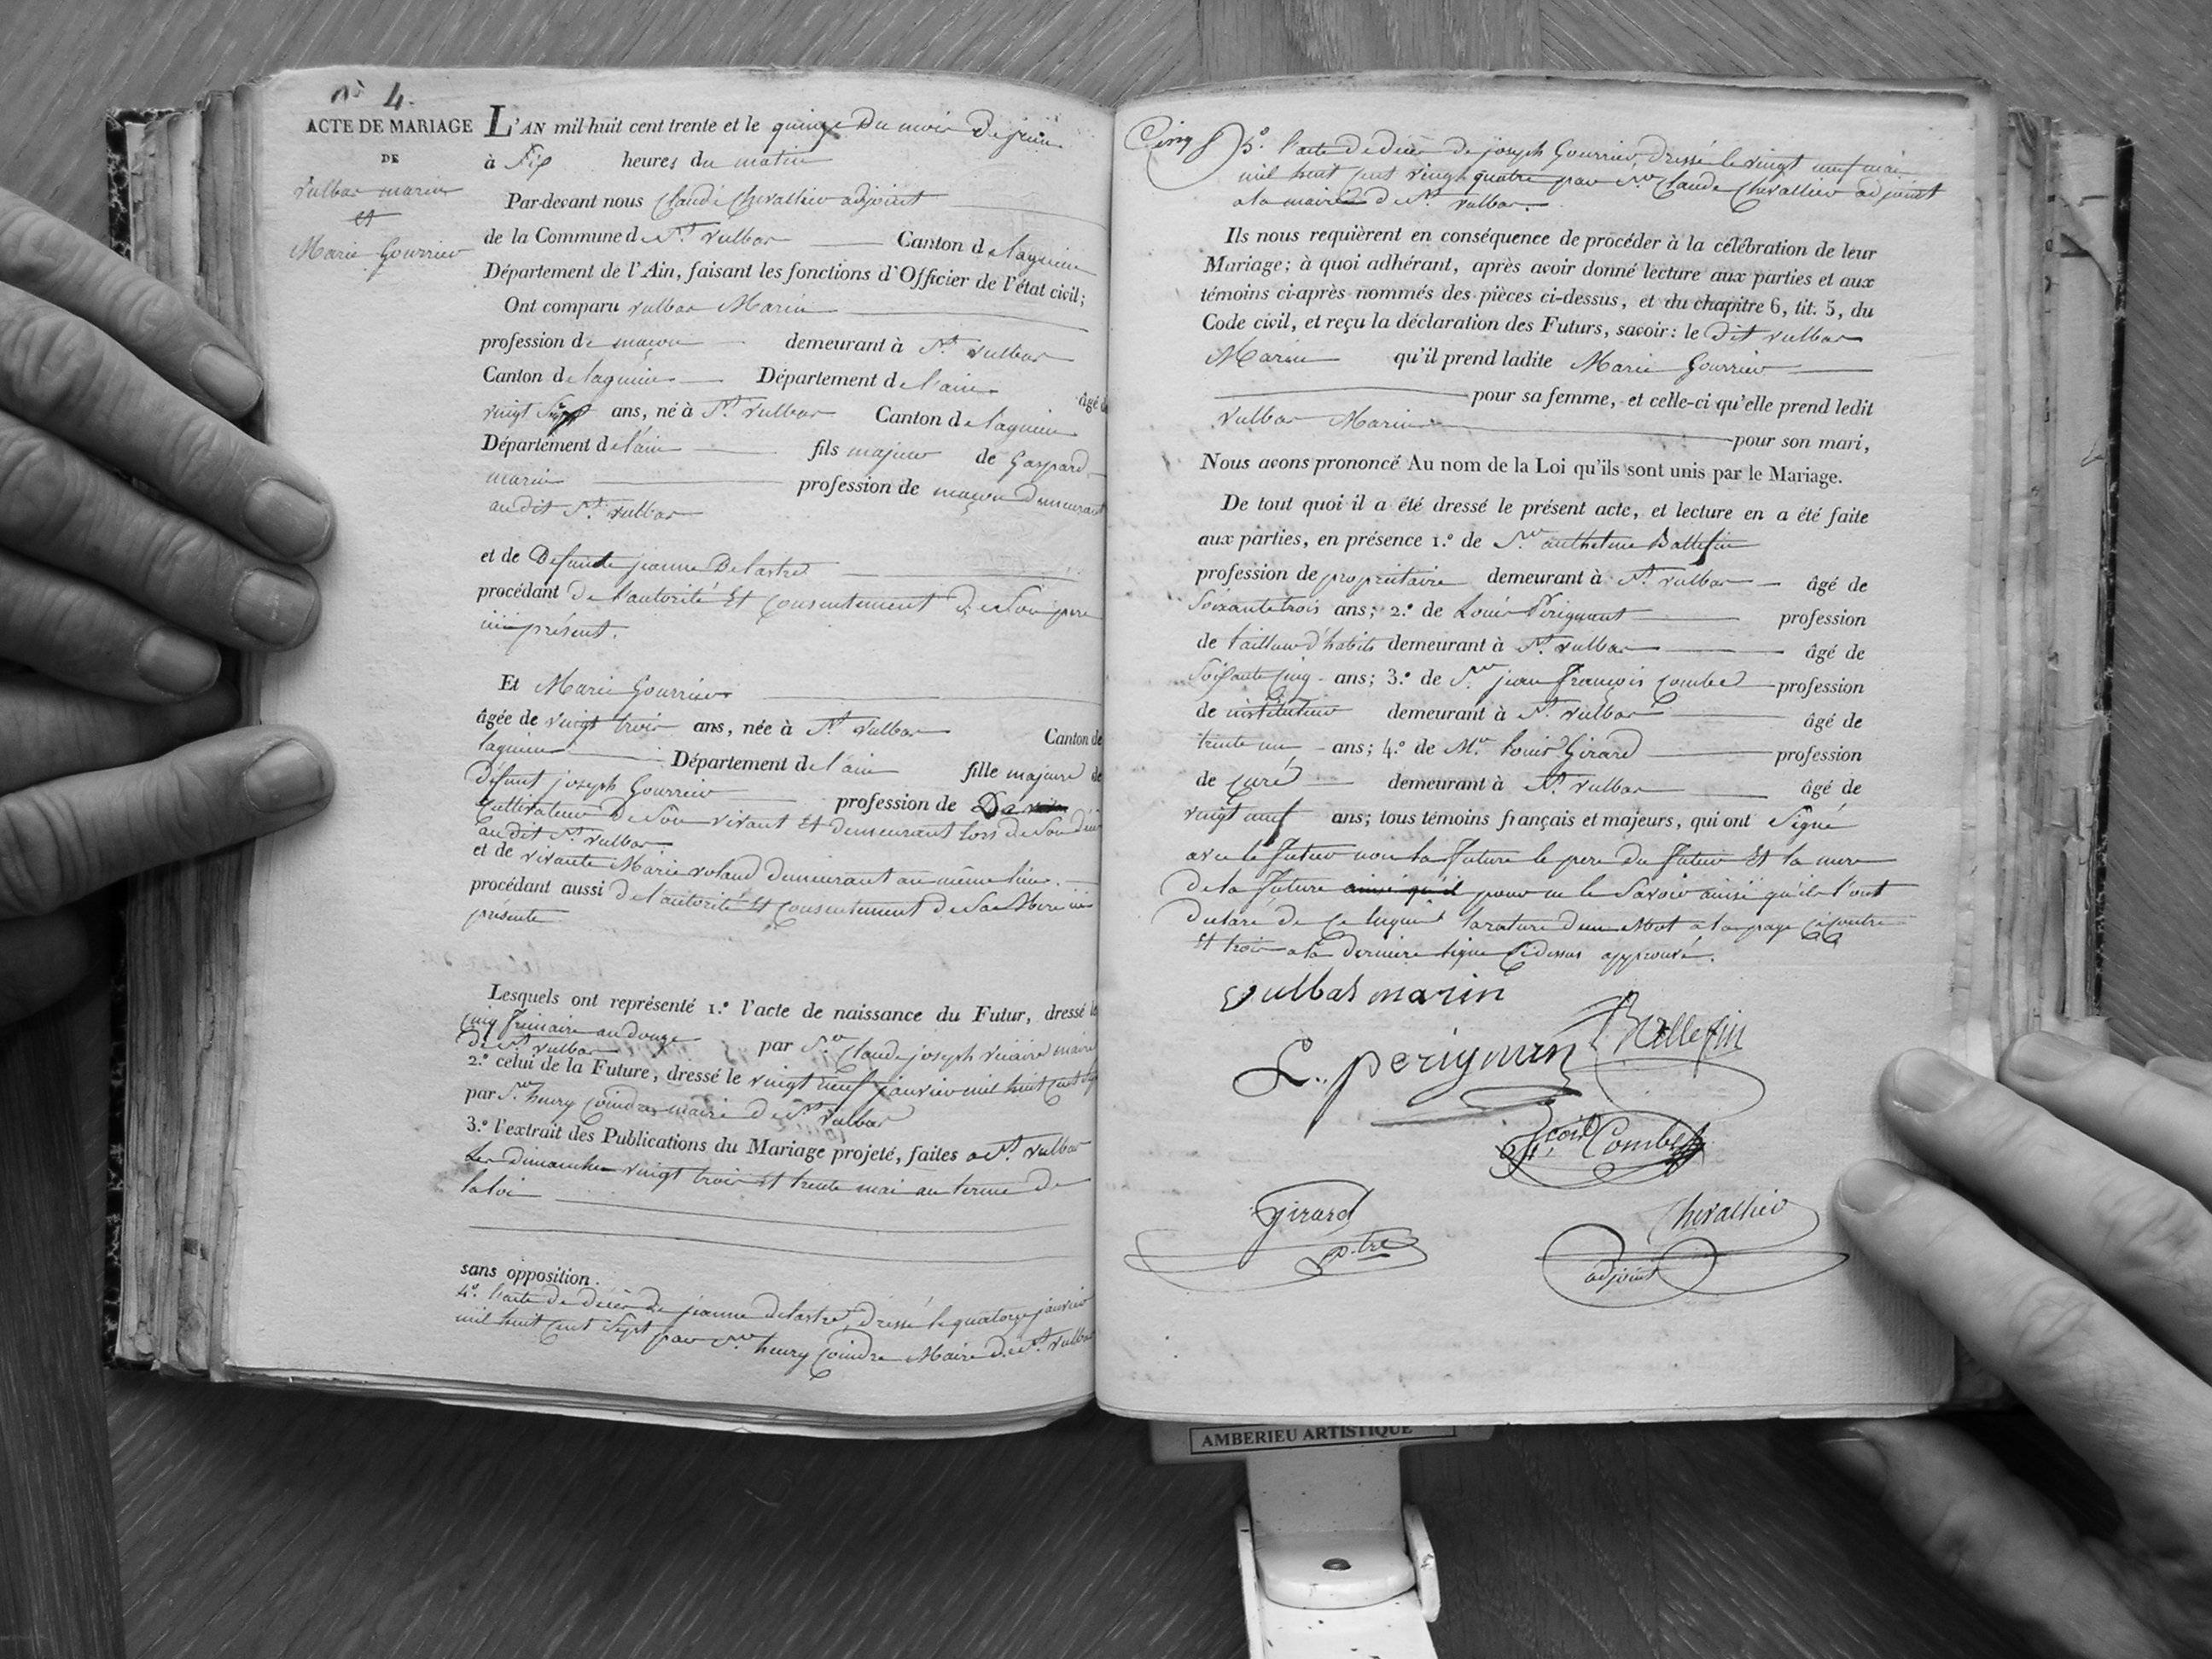 n° 4.
ACTE DE MARIAGE
DE
Vulbas marin
et
Marie Gourrieu
L'AN mil-huit cent trente et le quinze du mois de juin
à Six heures du matin
Par-devant nous Claude Chevallier adjoint
de la Commune de St. Vulbas Canton de lagnieu
Département de l'Ain, faisant les fonctions d'Officier de l'état civil;
Ont comparu vulbas Marin
profession de maçon demeurant à St. Vulbas
Canton de lagnieu Département de l'ain âgé de
vingt Six ans, né à St. Vulbas Canton de lagnieu
Département de l'ain fils majeur de Gaspard
marin profession de maçon demeurant
audit St. Vulbas
et de Defunte jeanne Delastre
procédant De l'autorité Et consentement de Son pere
ici présent.
Et Marie Gourrieu
âgée de vingt trois ans, née à St. Vulbas Canton de
lagnieu Département de l'ain fille majeure de
Défunt joseph Gourrieu profession de
Cultivateur De Son vivant Et demeurant lors de Son décès
audit St. Vulbas
et de vivante Marie roland demeurant au même lieu.
procédant aussi De l'autorité Et consentement de Sa Mere ici
présente
Lesquels ont représenté 1.° l'acte de naissance du Futur, dressé le
cinq frimaire an douze par Sr. Claude joseph vicaire maire
de St. Vulbas
2.° celui de la Future, dressé le vingt neuf janvier mil huit cent Sept
par Sr. henry Coindre maire de St. Vulbas
3.° l'extrait des Publications du Mariage projeté, faites a St. Vulbas
les dimanches vingt trois Et trente mai au terme de
la loi
sans opposition.
4°. l'acte de décès de jeanne delastre, dressé le quatorze janvier
mil huit cent Sept par Sr. henry Coindre Maire de St. Vulbas
Cinq
5°. l'acte de décès de joseph Gourrieu, dressé le vingt neuf mai
mil huit cent vingt quatre par Sr. Claude Chevallier adjoint
a la mairie de St. Vulbas.
Ils nous requièrent en conséquence de procéder à la célébration de leur
Mariage; à quoi adhérant, après avoir donné lecture aux parties et aux
témoins ci-après nommés des pièces ci-dessus, et du chapitre 6, tit. 5, du
Code civil, et reçu la déclaration des Futurs, savoir: le dit vulbas
Marin qu'il prend ladite Marie Gourrieu
pour sa femme, et celle-ci qu'elle prend ledit
Vulbas Marin pour son mari,
Nous avons prononcé Au nom de la Loi qu'ils sont unis par le Mariage.
De tout quoi il a été dressé le présent acte, et lecture en a été faite
aux parties, en présence 1.° de Sr. anthelme Ballefin
profession de propriétaire demeurant à St. Vulbas âgé de
Soixante trois ans; 2.° de Louis Perignant profession
de tailleur d'habits demeurant à St. Vulbas âgé de
Soixante Cinq ans; 3.° de Sr. jean françois Combe profession
de instituteur demeurant à St. Vulbas âgé de
trente un ans; 4.° de Mr. Louis Girard profession
de curé demeurant à St. Vulbas âgé de
vingt neuf ans; tous témoins français et majeurs, qui ont Signé
avec le futur non la future le pere du futur Et la mere
De la future ainsi qu'il pour ne le Savoir ainsi qu'ils l'ont
Declaré de ce Requis la rature d'un Mot a la page ci contre
Et trois a la derniere ligne Cidessus approuvé.
vulbas marin
Ballefin
L. perignan
fcois Combe
girard
p.tre
Chevallier
adjoint
AMBERIEU ARTISTIQUE